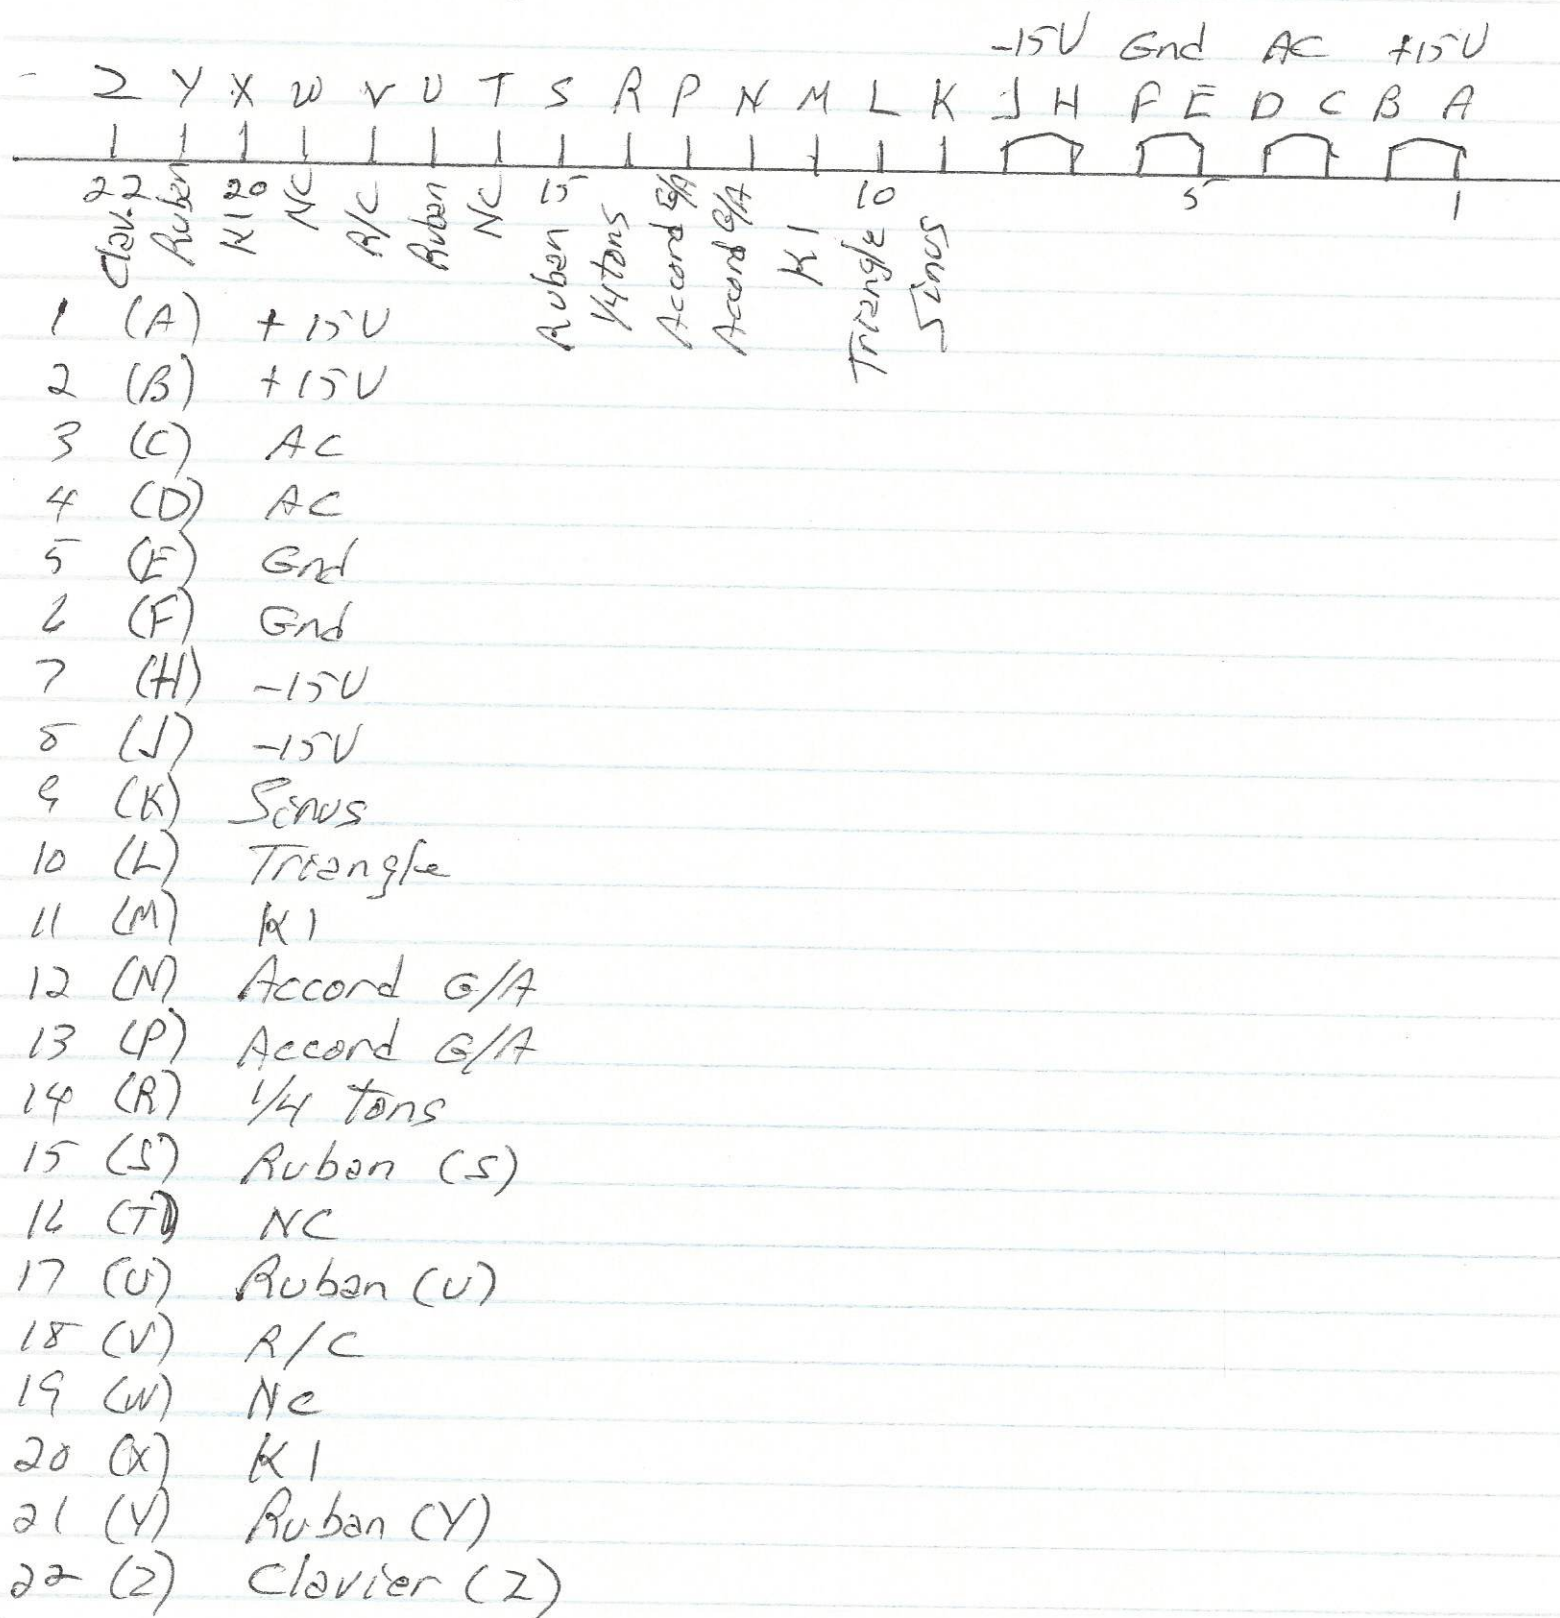 -15V Gnd AC +15V
Z Y X W V U T S R P N M L K J H F E D C B A
22 20 15 10 5 1
Clav. Z Ruban K1 NC R/C Ruban NC Ruban 1/4 tons Accord G/A Accord G/A K1 Triangle Sinus
1 (A) +15V
2 (B) +15V
3 (C) AC
4 (D) AC
5 (E) Gnd
6 (F) Gnd
7 (H) -15V
8 (J) -15V
9 (K) Sinus
10 (L) Triangle
11 (M) K1
12 (N) Accord G/A
13 (P) Accord G/A
14 (R) 1/4 tons
15 (S) Ruban (S)
16 (T) NC
17 (U) Ruban (U)
18 (V) R/C
19 (W) NC
20 (X) K1
21 (Y) Ruban (Y)
22 (Z) Clavier (Z)